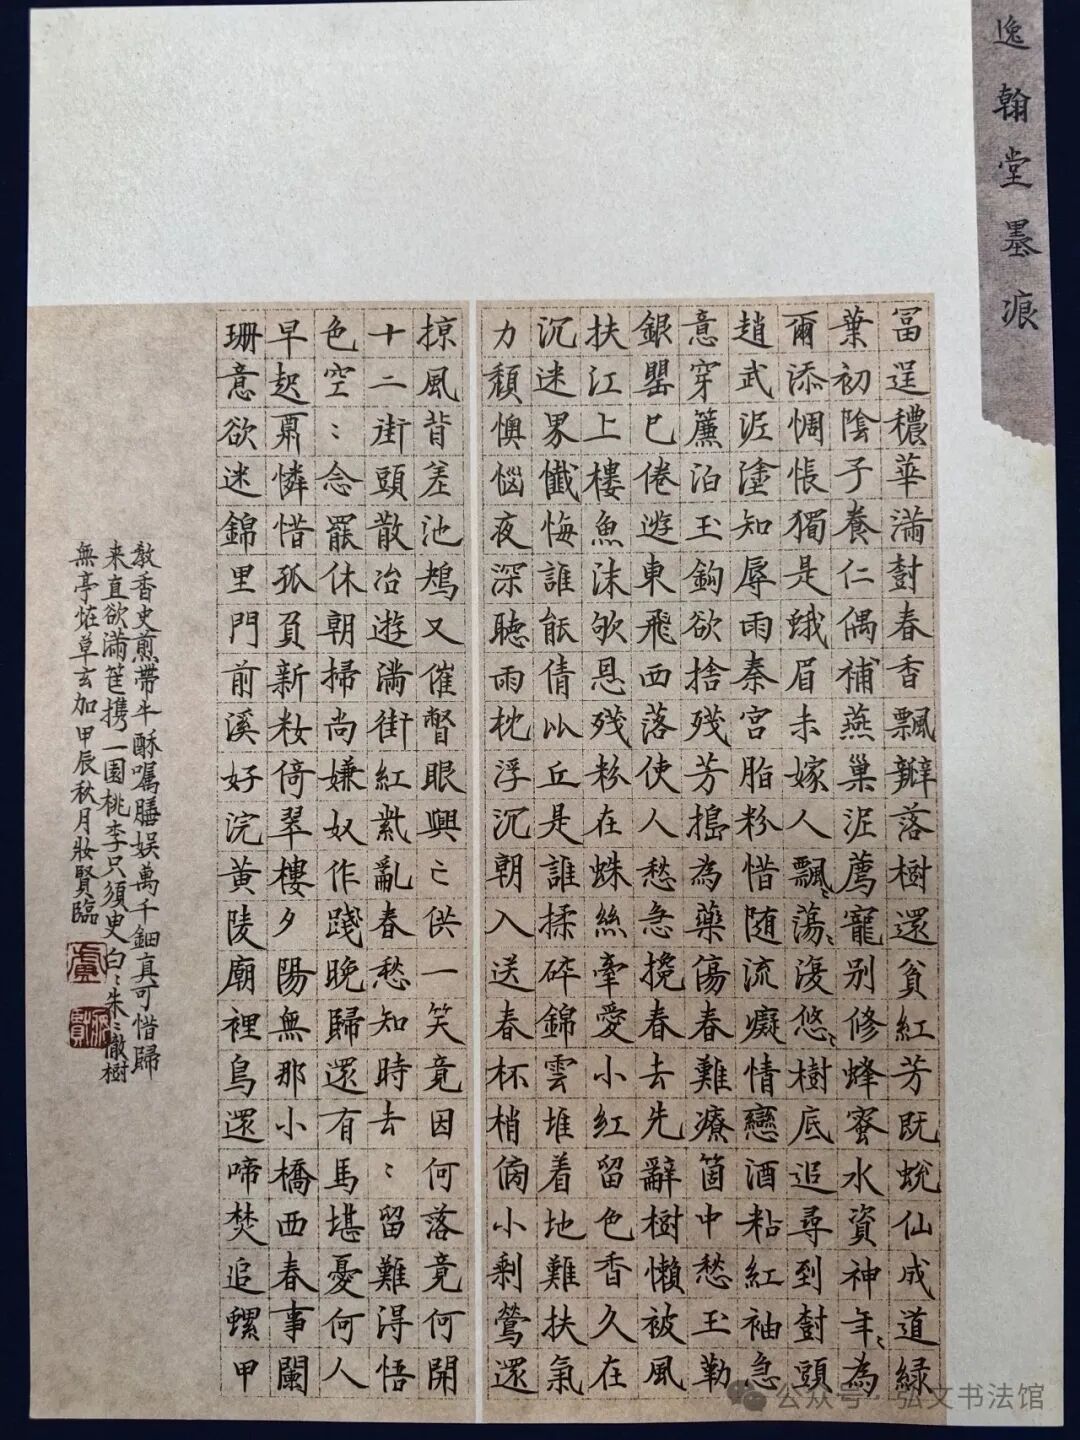 逸翰堂墨痕
富逞穠華滿封春香飄瓣落樹還貧紅芳既蛻仙成道緑
葉初陰子養仁偶補燕巢泥薦寵别修蜂蜜水資神年〻為
爾添惆悵獨是蛾眉未嫁人飄〻蕩〻復悠〻樹底追尋到封頭
趙武泥塗知辱雨秦宮脂粉惜随流癡情戀酒粘紅袖急
意穿簾泊玉鈎欲捨殘芳搗為藥傷春難療箇中愁玉勒
銀罌已倦遊東飛西落使人愁急攙春去先辭樹懶被風
扶江上樓魚沫欨恩殘粉在蛛絲牽愛小紅留色香久在
沉迷界懺悔誰能倩以丘是誰揉碎錦雲堆着地難扶氣
力頹懊惱夜深聽雨枕浮沉朝入送春杯梢偽小剩鶯還
掠風背差池鴂又催瞥眼興亡供一笑竟因何落竟何開
十二街頭散冶遊滿街紅紫亂春愁知時去〻留難得悟
色空〻念罷休朝掃尚嫌奴作踐晚歸還有馬堪憂何人
早起鬲憐惜孤負新妝倚翠樓夕陽無那小橋西春事闌
珊意欲迷錦里門前溪好浣黃陵廟裡鳥還啼焚追螺甲
教香史煎帶牛酥囑膳娛萬千鈿真可惜歸
来直欲滿筐携一園桃李只須史白〻朱〻徹樹
無亭怪草玄加甲辰秋月妝賢臨
公众号·弘文书法馆